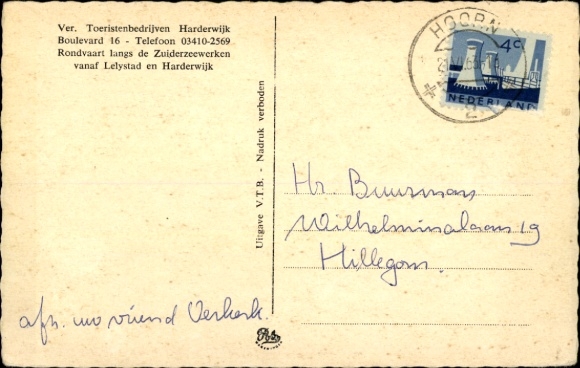 Ver. Toeristenbedrijven Harderwijk
Boulevard 16 - Telefoon 03410-2569
Rondvaart langs de Zuiderzeewerken
vanaf Lelystad en Harderwijk
Uitgave V.T.B. - Nadruk verboden
HOORN
2
4 c
NEDERLAND
Hr. Buurman
Wilhelminalaan 19
Hillegom.
afz. uw vriend Verkerk.